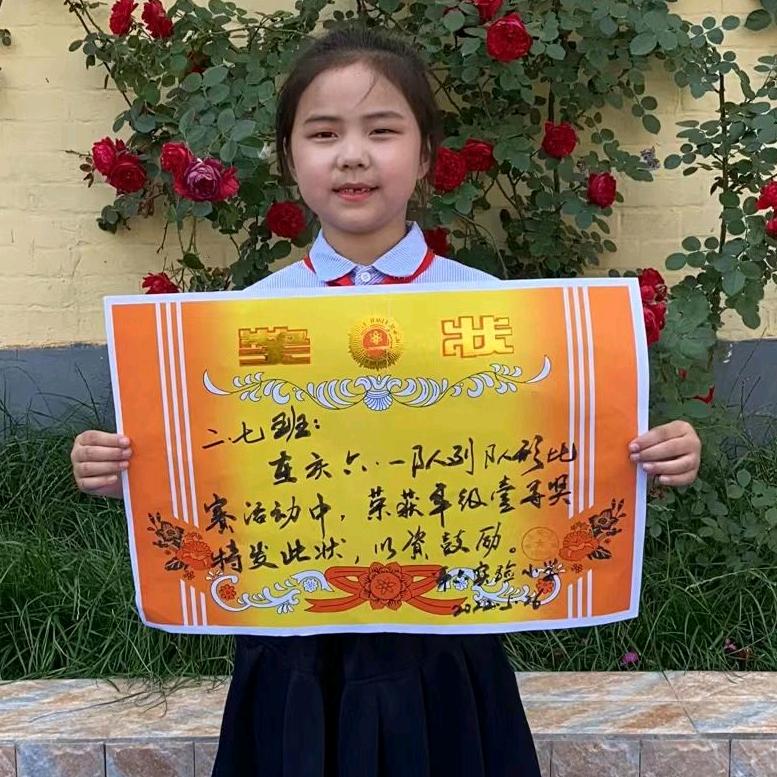 荣状
二.七班:
在庆六.一队列队形比
赛活动中，荣获年级壹等奖
特发此状，以资鼓励。
实验小学
2022.5.26